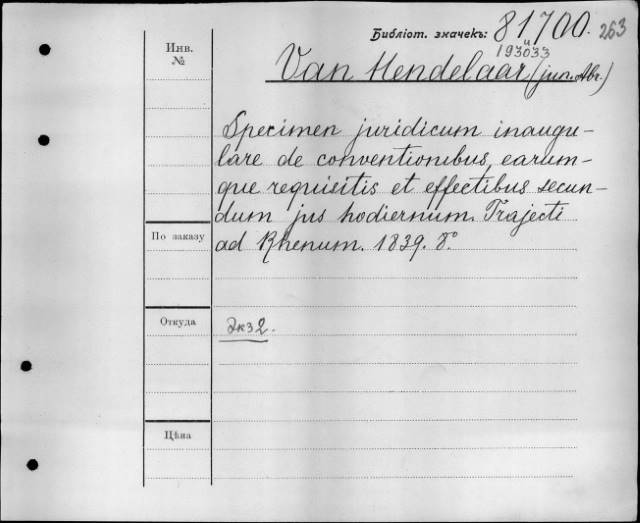 Библіот. значекъ: 81700. 263
и
193033
Инв.
№
Van Hendelaar (jun. Abr.)
Specimen juridicum inaugu-
lare de conventionibus, earum-
que requisitis et effectibus secun-
dum jus hodiernum. Trajecti
По заказу
ad Rhenum. 1839. 8°.
Откуда
Экз 2.
Цѣна